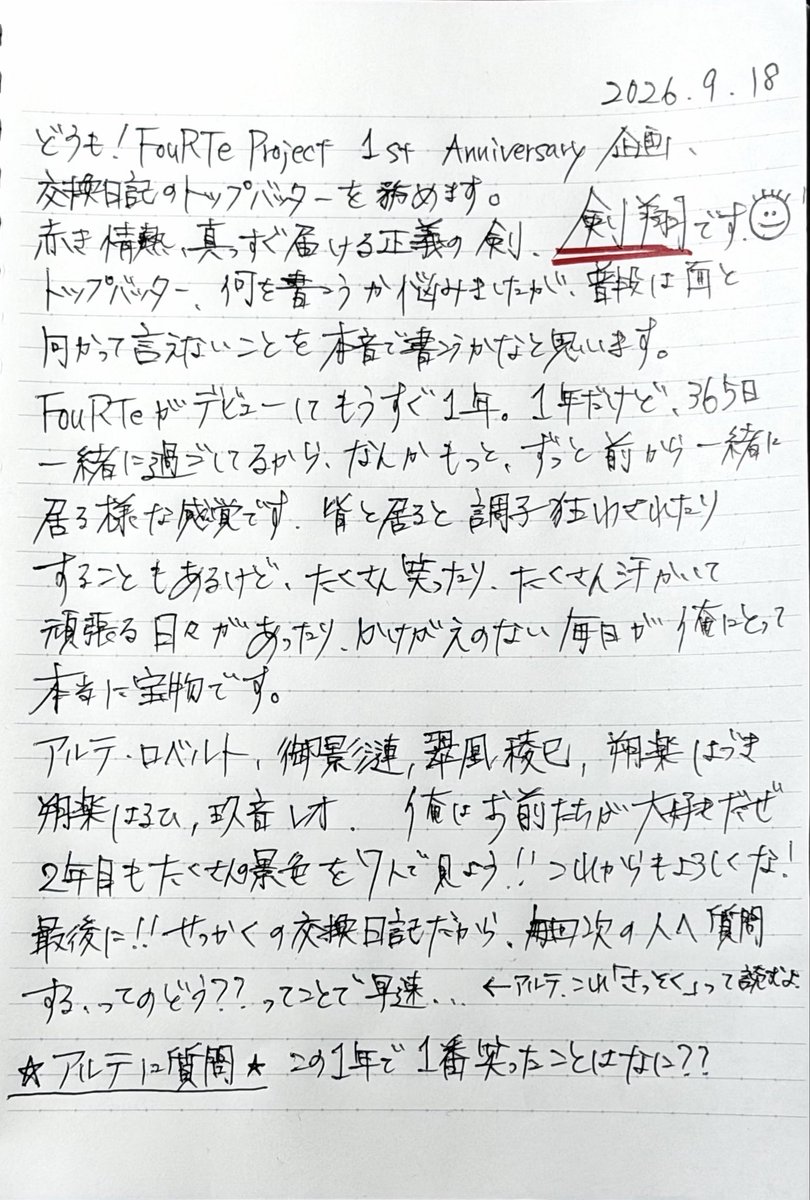 2026.9.18
どうも！FouRTe Project 1st Anniversary 企画、
交換日記のトップバッターを務めます。
赤き情熱、真っすぐ届ける正義の剣、剣 翔です。
トップバッター、何を書こうか悩みましたが、普段は面と
向かって言えないことを本音で書こうかなと思います。
FouRTeがデビューしてもうすぐ1年。1年だけど、365日
一緒に過ごしてるから、なんかもっと、ずっと前から一緒に
居る様な感覚です。皆と居ると調子狂わされたり
することもあるけど、たくさん笑ったり、たくさん汗かいて
頑張る日々があったり、かけがえのない毎日が俺にとって
本当に宝物です。
アルテ・ロベルト, 御影漣, 翠凰稜巳, 朔楽はづき
朔楽はるひ, 玖音レオ. 俺はお前たちが大好きだぜ
2年目もたくさんの景色を7人で見よう!! これからもよろしくな!
最後に!! せっかくの交換日記だから、毎回次の人へ質問
する、ってのどう?? ってことで早速... ←アルテ、これ「さっそく」って読むよ
☆アルテに質問☆ この1年で1番笑ったことはなに??